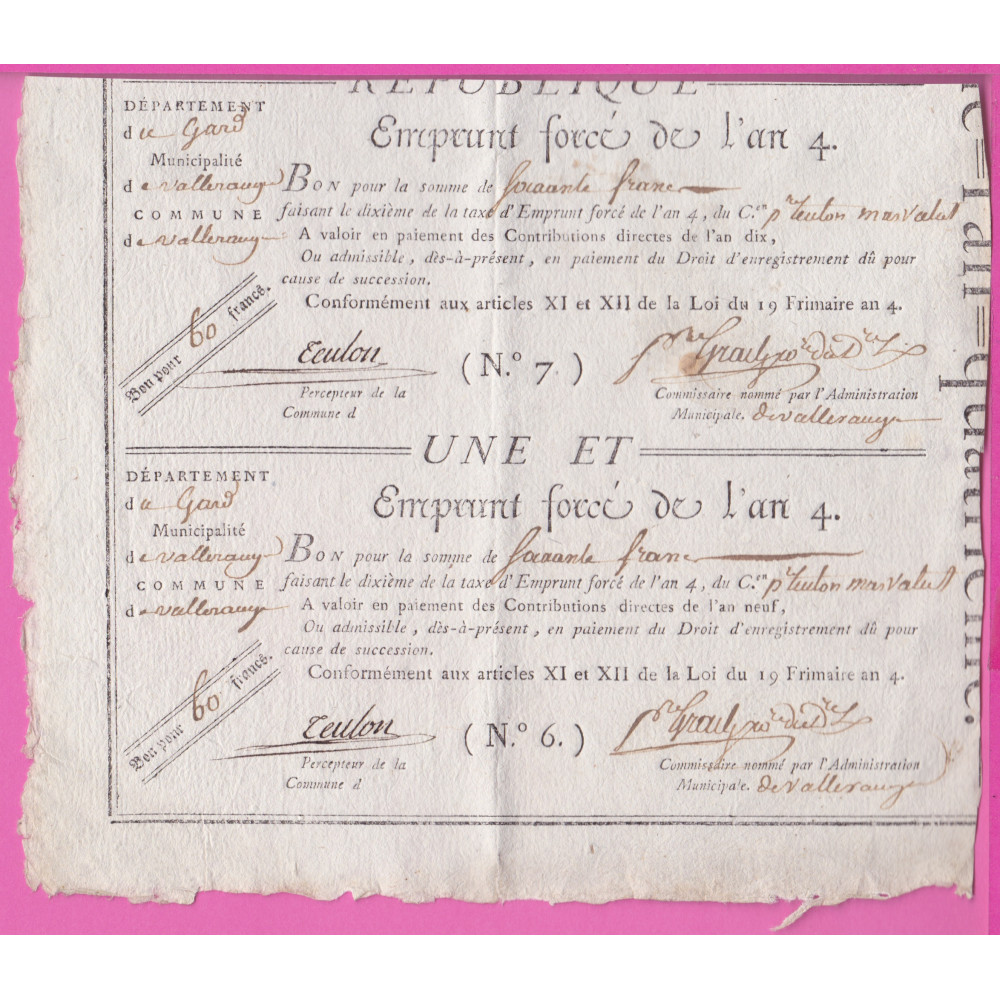 RÉPUBLIQUE
DÉPARTEMENT
du Gard
Municipalité
de valleraugue
COMMUNE
de valleraugue
Emprunt forcé de l'an 4.
BON pour la somme de soixante franc
faisant le dixième de la taxe d'Emprunt forcé de l'an 4, du C.en pre teulon mas valat
A valoir en paiement des Contributions directes de l'an dix,
Ou admissible, dès-à-présent, en paiement du Droit d'enregistrement dû pour
cause de succession.
Conformément aux articles XI et XII de la Loi du 19 Frimaire an 4.
Bon pour 60 francs.
Teulon
(N.° 7.)
Percepteur de la
Commune d
Commissaire nommé par l'Administration
Municipale. de valleraugue
UNE ET
DÉPARTEMENT
du Gard
Municipalité
de valleraugue
COMMUNE
de valleraugue
Emprunt forcé de l'an 4.
BON pour la somme de soixante franc
faisant le dixième de la taxe d'Emprunt forcé de l'an 4, du C.en pre teulon mas valat
A valoir en paiement des Contributions directes de l'an neuf,
Ou admissible, dès-à-présent, en paiement du Droit d'enregistrement dû pour
cause de succession.
Conformément aux articles XI et XII de la Loi du 19 Frimaire an 4.
Bon pour 60 francs.
Teulon
(N.° 6.)
Percepteur de la
Commune d
Commissaire nommé par l'Administration
Municipale. de valleraugue